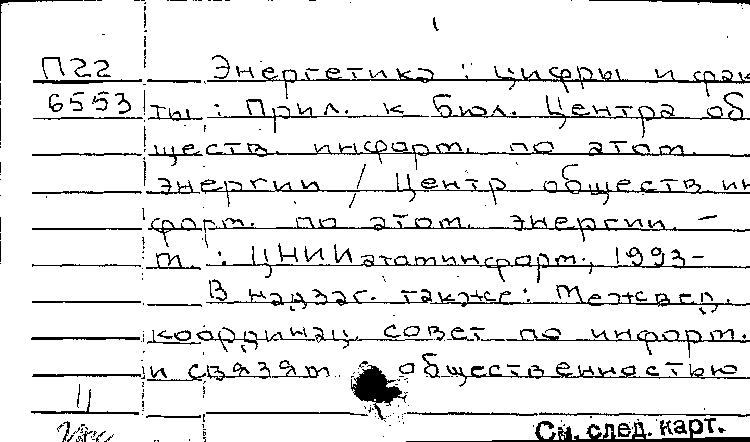 П22 Энергетика : цифры и фак
6553 ты : Прил. к бюл. Центра об
ществ. информ. по атом.
энергии / Центр обществ ин
форм. по атом. энергии. –
м. : ЦНИИатоминформ, 1993–
В надзаг. также: Межвед.
координац. совет по информ.
и связям общественностью
См. след. карт.